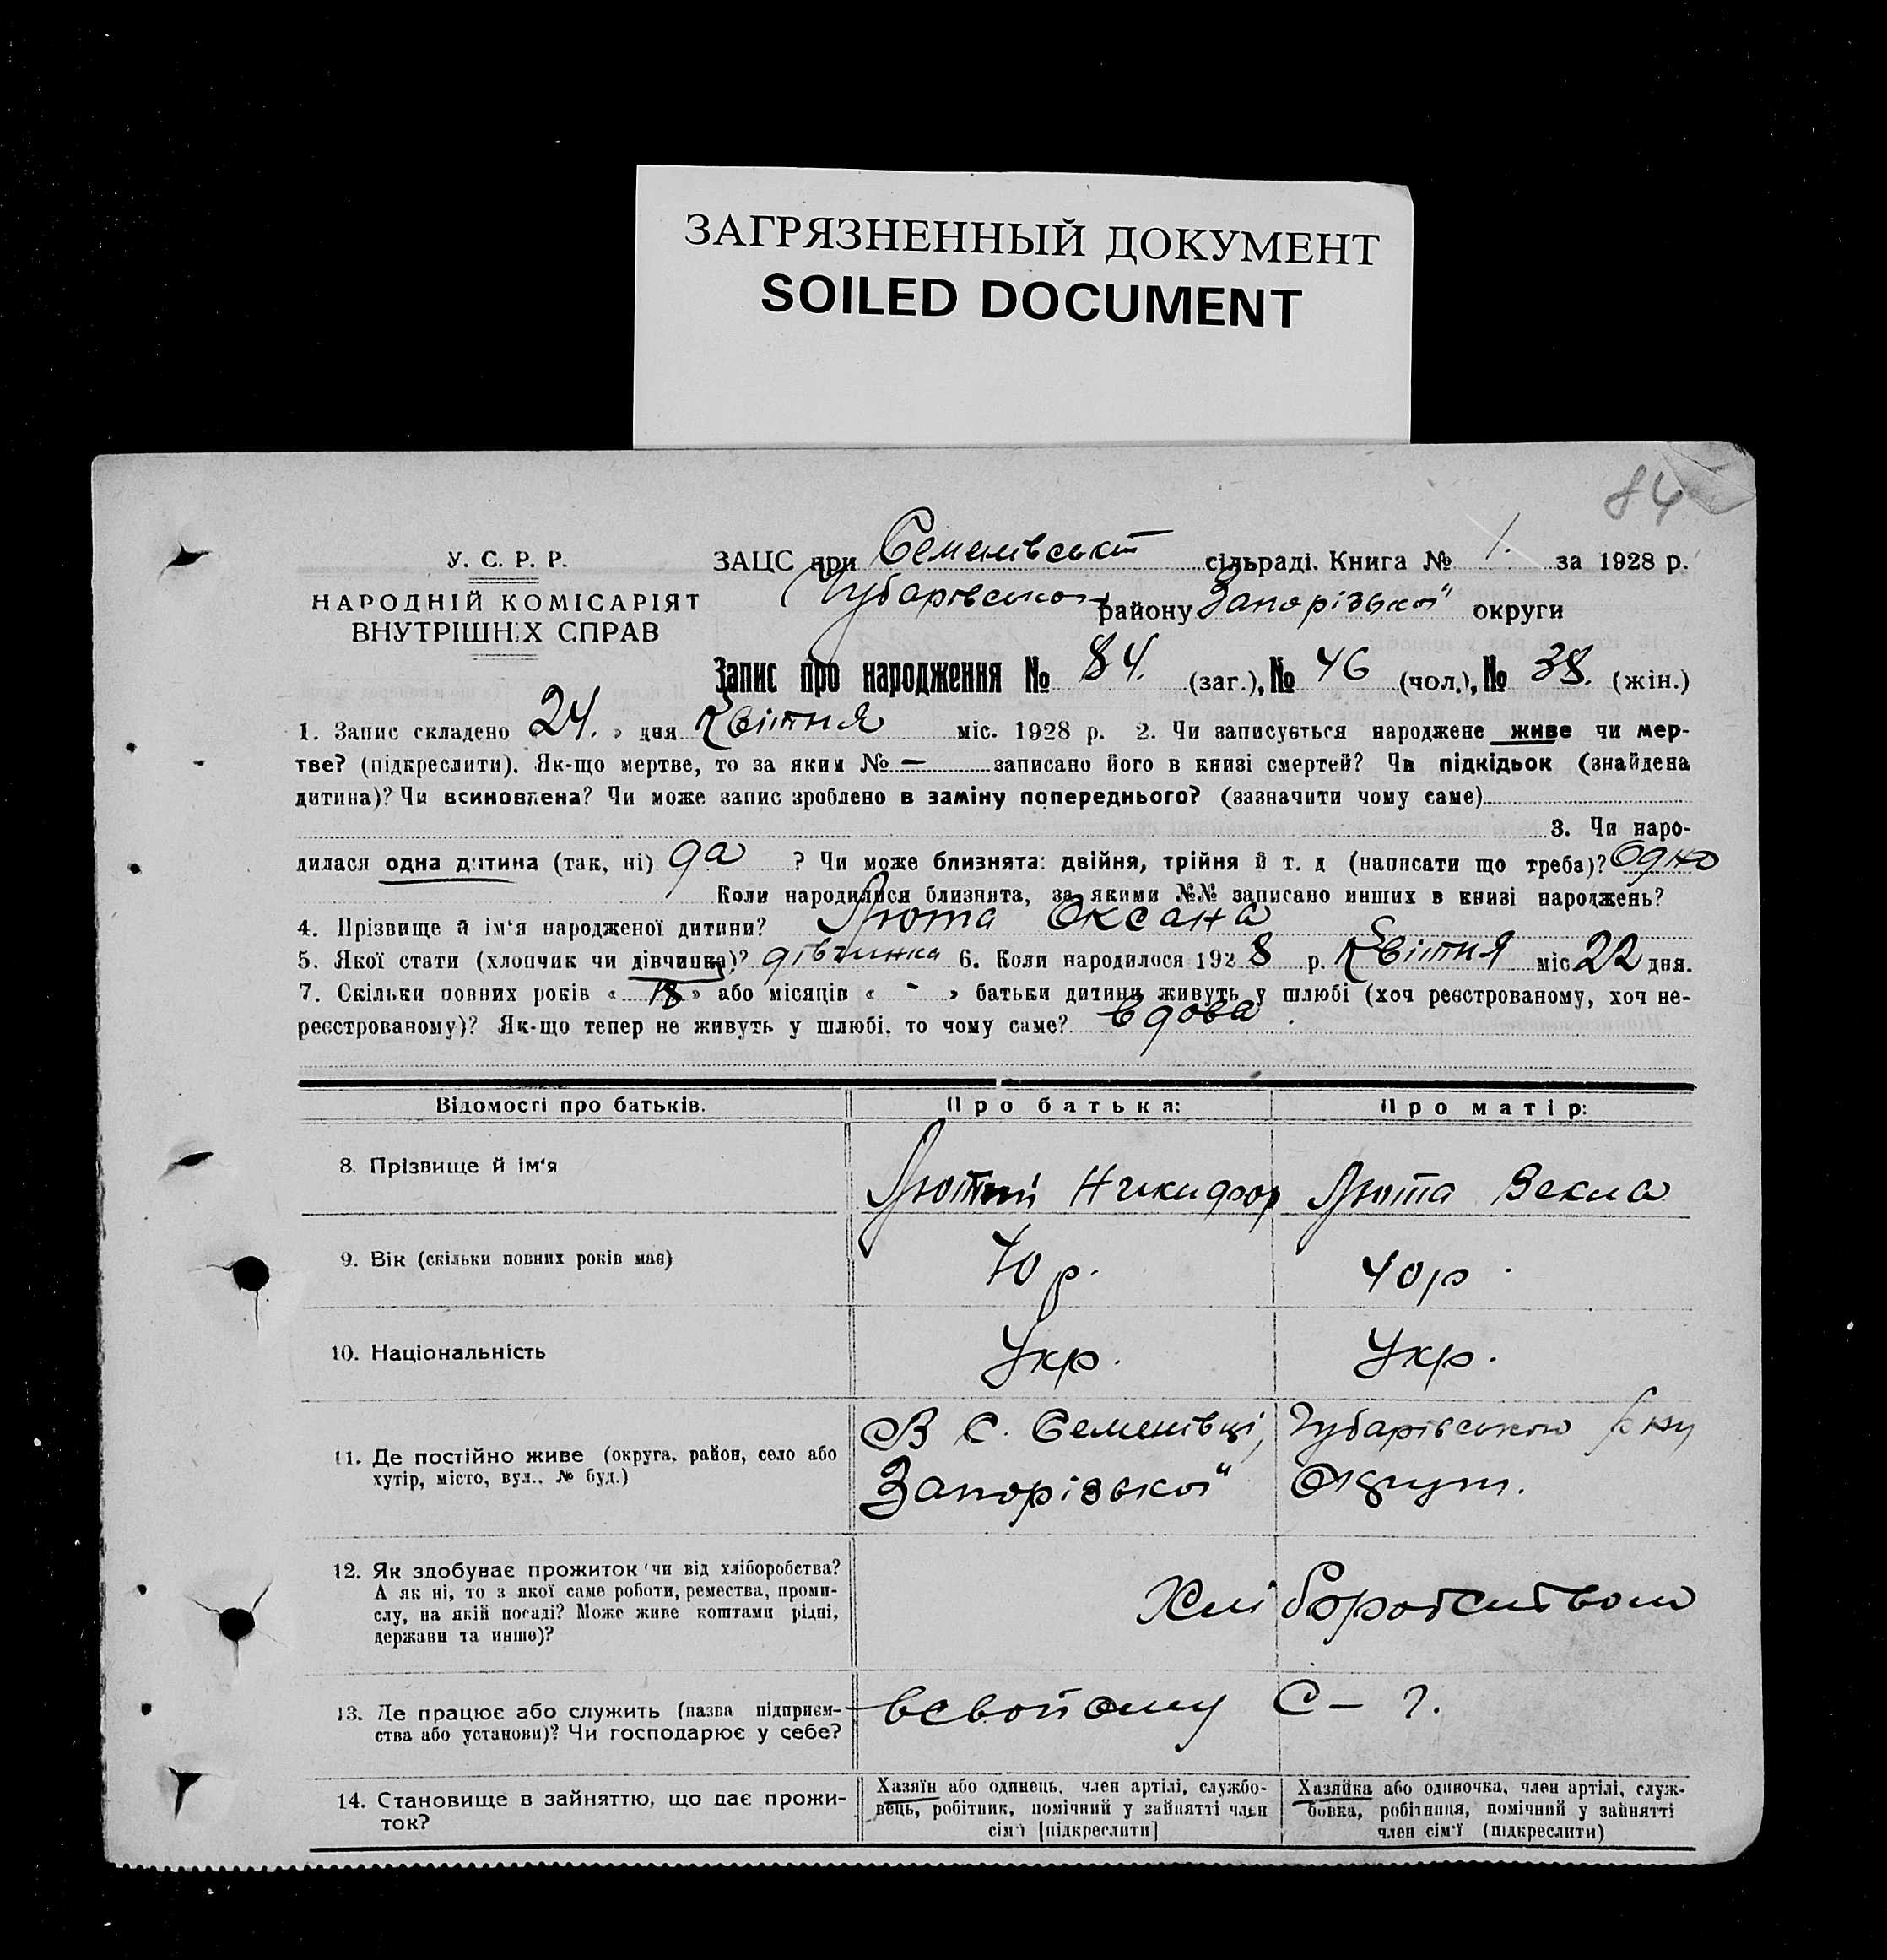 ЗАГРЯЗНЕННЫЙ ДОКУМЕНТ
SOILED DOCUMENT
84
У. С. Р. Р.
НАРОДНІЙ КОМІСАРІЯТ
ВНУТРІШНІХ СПРАВ
ЗАЦС при Семенівській сільраді. Книга № 1. за 1928 р.
Чубарівського району Запорізької округи
Запис про народження № 84. (заг.), № 46 (чол.), № 38. (жін.)
1. Запис складено 24. » дня Квітня міс. 1928 р. 2. Чи записується народжене живе чи мер-
тве? (підкреслити). Як-що мертве, то за яким № — записано його в книзі смертей? Чи підкідьок (знайдена
дитина)? Чи всиновлена? Чи може запис зроблено в заміну попереднього? (зазначити чому саме)
3. Чи наро-
дилася одна дитина (так, ні) да ? Чи може близнята: двійня, трійня й т. д (написати що треба)? Одно
Коли народилися близнята, за якими №№ записано инших в книзі народжень?
4. Прізвище й ім'я народженої дитини? Люта Оксана
5. Якої стати (хлопчик чи дівчинка)? дівчинка 6. Коли народилося 1928 р. Квітня міс 22 дня.
7. Скільки повних років « 18 » або місяців « - » батьки дитини живуть у шлюбі (хоч реєстрованому, хоч не-
реєстрованому)? Як-що тепер не живуть у шлюбі, то чому саме? вдова.
Відомості про батьків. Про батька: Про матір:
8. Прізвище й ім'я Лютий Никифор Люта Векла
9. Вік (скільки повних років має) 40 р. 40 р.
10. Національність Укр. Укр.
11. Де постійно живе (округа, район, село або
хутір, місто, вул., № буд.)
В С. Семенівці, Чубарівського р-ну
Запорізької Округи.
12. Як здобуває прожиток чи від хліборобства?
А як ні, то з якої саме роботи, ремества, проми-
слу, на якій посаді? Може живе коштами рідні,
держави та инше)?
Хліборобством
13. Де працює або служить (назва підприєм-
ства або установи)? Чи господарює у себе?
в свойому С – г.
14. Становище в зайняттю, що дає прожи-
ток?
Хазяїн або одинець, член артілі, службо-
вець, робітник, помічний у зайнятті член
сім'ї [підкреслити]
Хазяйка або одиночка, член артілі, служ-
бовка, робітниця, помічний у зайнятті
член сім'ї (підкреслити)